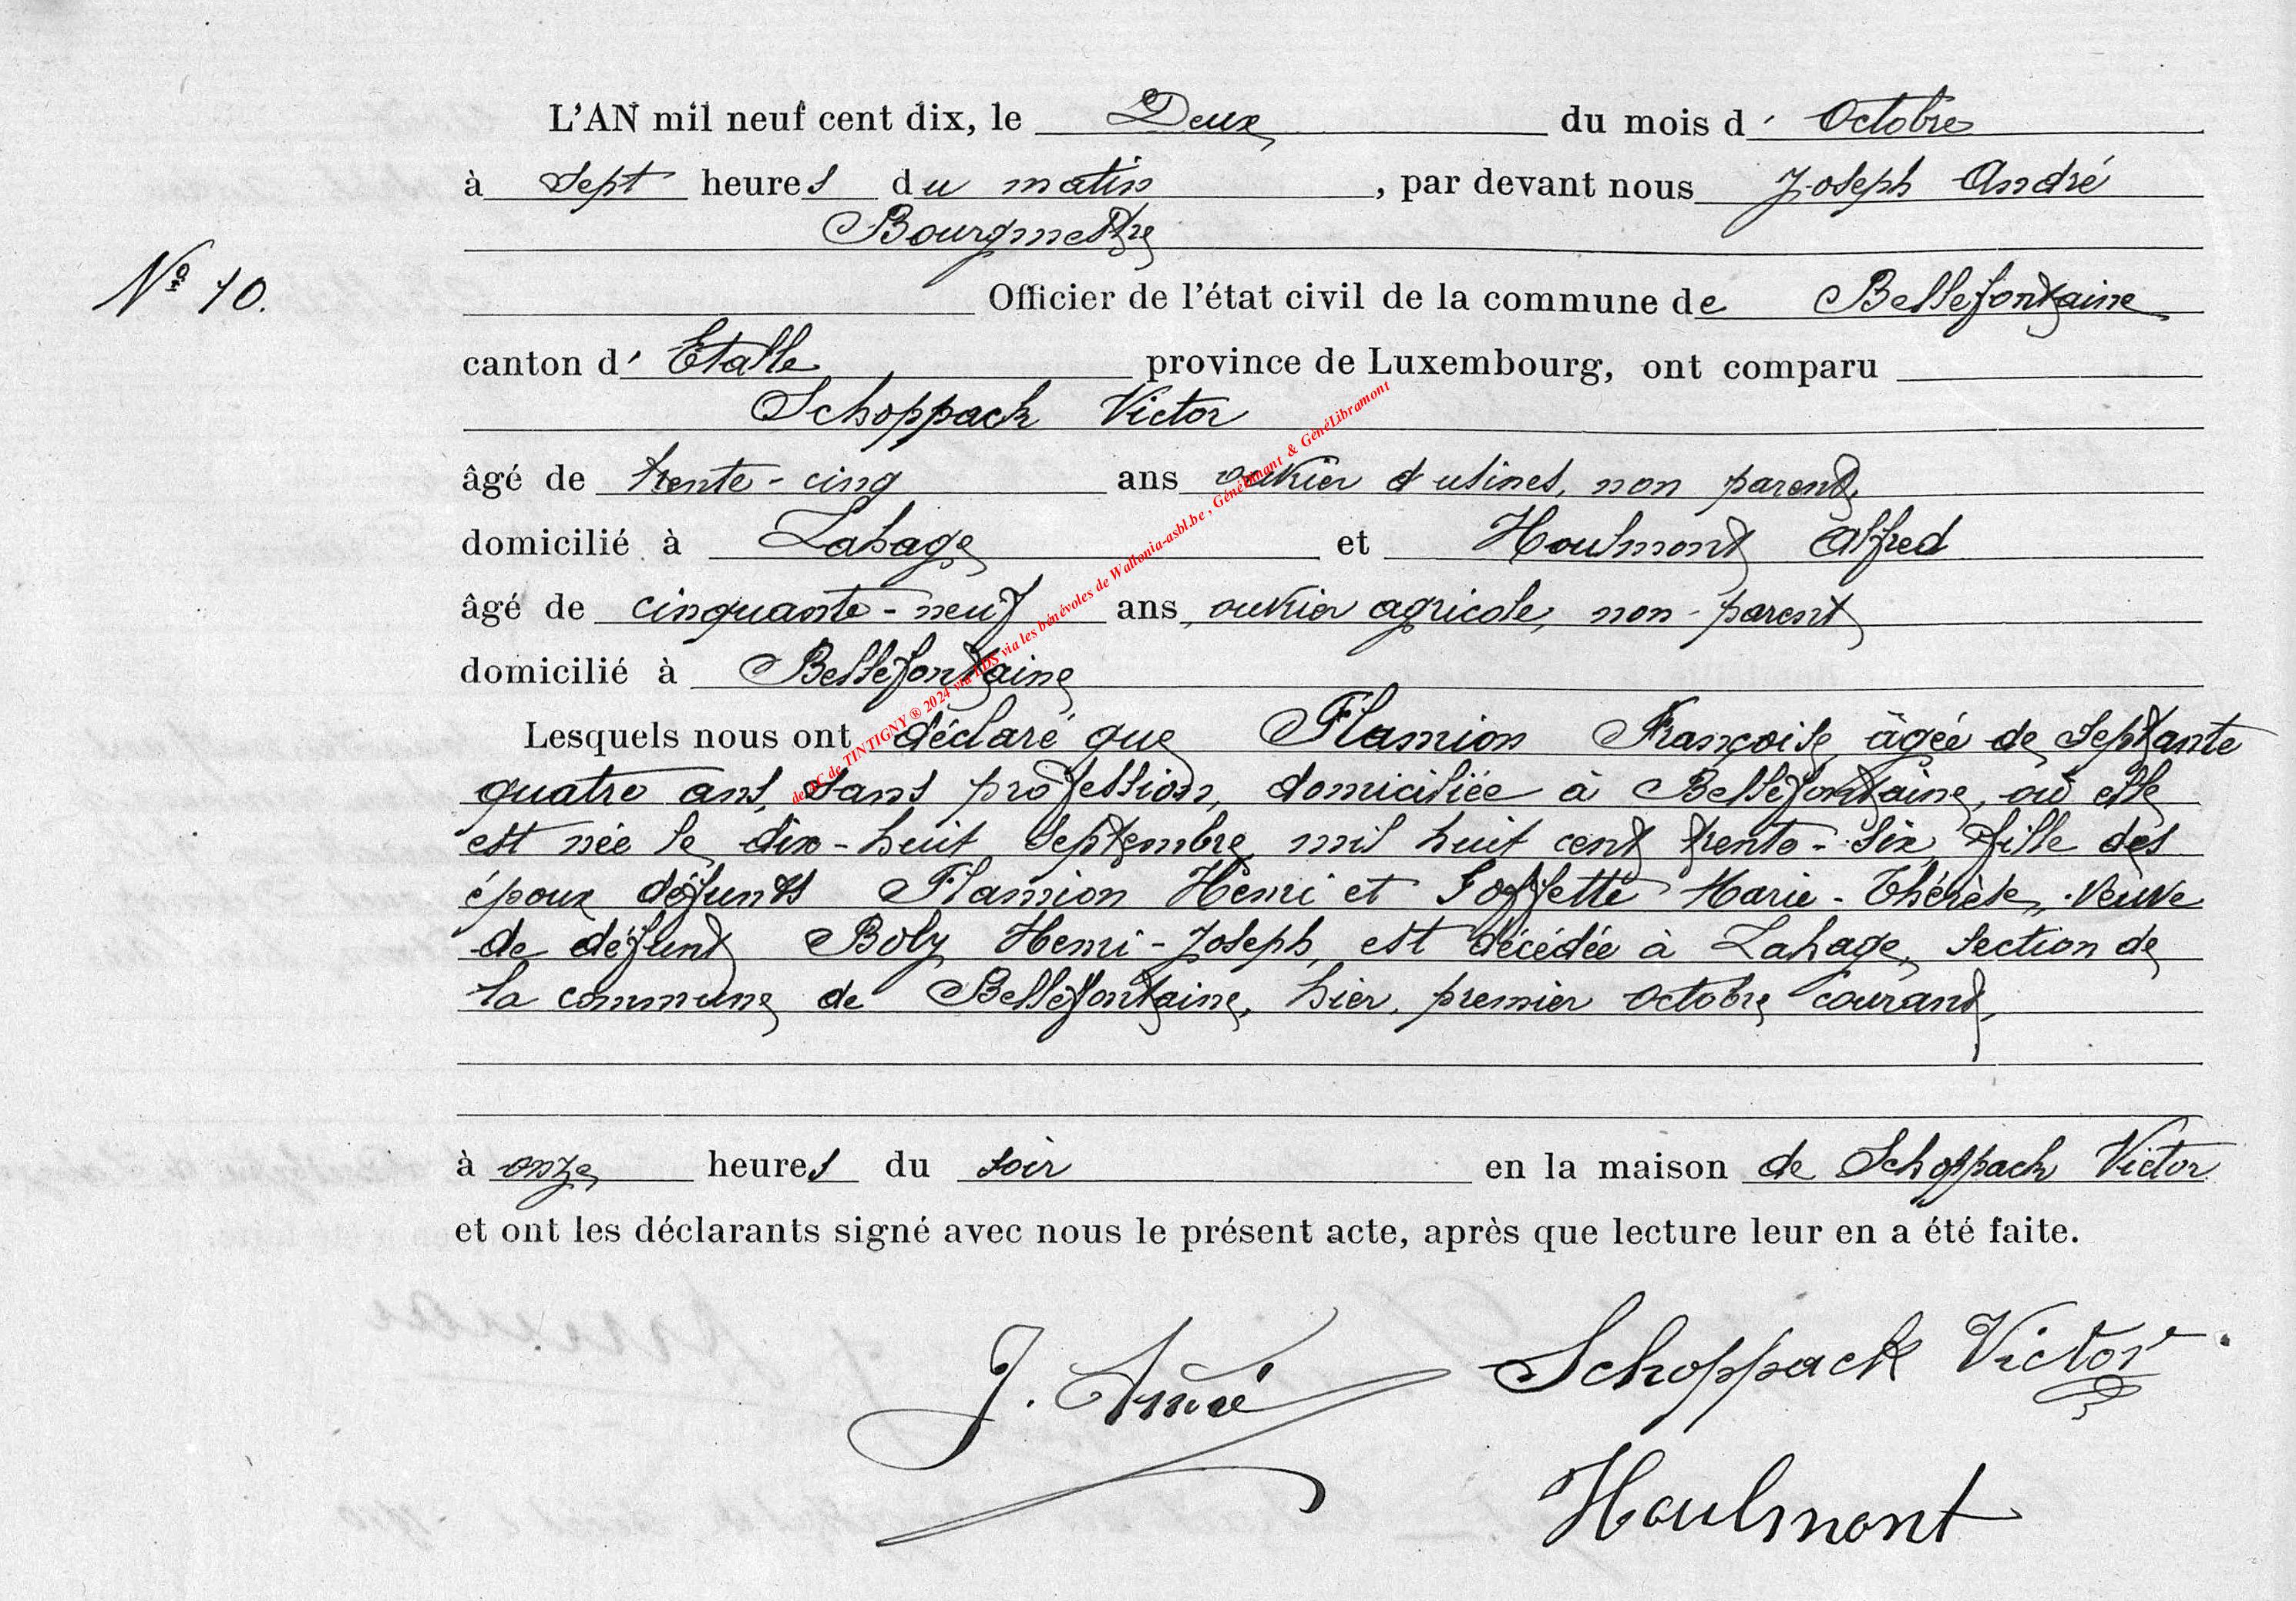 L'AN mil neuf cent dix, le Deux du mois d' Octobre
à sept heures du matin, par devant nous Joseph André
Bourgmestre
N° 10.
Officier de l'état civil de la commune de Bellefontaine
canton d' Etalle province de Luxembourg, ont comparu
Schoppach Victor
âgé de trente-cinq ans ouvrier d'usines, non parent,
domicilié à Lahage et Houlmont Alfred
âgé de cinquante-neuf ans, ouvrier agricole, non-parent
domicilié à Bellefontaine
Lesquels nous ont déclaré que Flamion Françoise, âgée de septante
quatre ans, sans profession, domiciliée à Bellefontaine, où elle
est née le dix-huit septembre mil huit cent trente-six, fille des
époux défunts Flamion Henri et Goffette Marie-Thérèse, veuve
de défunt Boly Henri-Joseph, est décédée à Lahage, section de
la commune de Bellefontaine, hier, premier octobre courant,
à onze heures du soir en la maison de Schoppach Victor
et ont les déclarants signé avec nous le présent acte, après que lecture leur en a été faite.
J. André Schoppack Victor
Houlmont
de EC de TINTIGNY ® 2024 via FDS via les bénévoles de Wallonia-asbl.be, GénéDinant & GénéLibramont